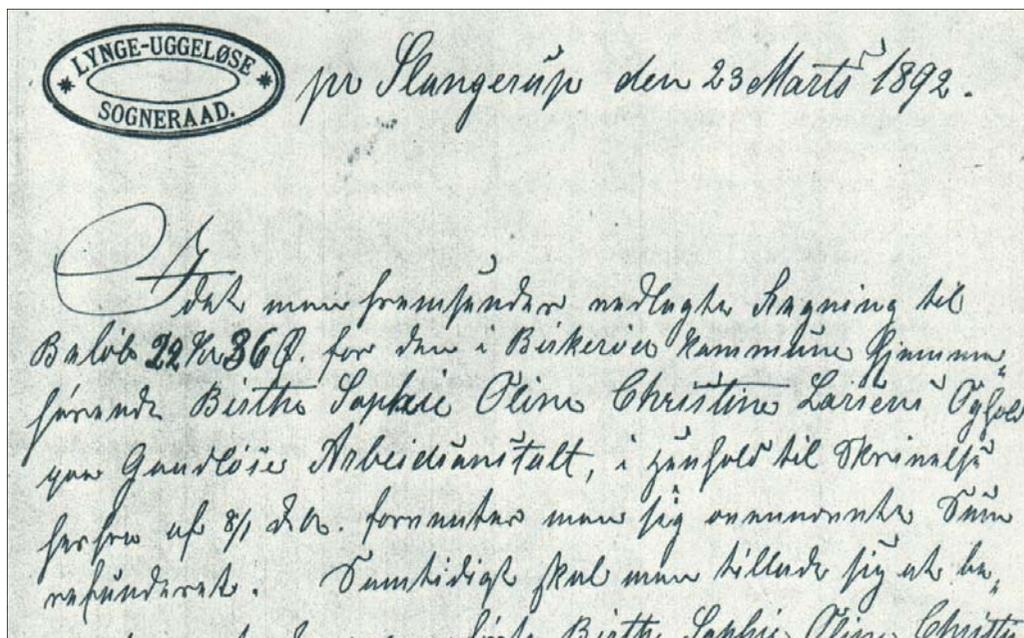 LYNGE-UGGELØSE
SOGNERAAD.
pr Slangerup den 23 Marts 1892.
Idet man fremsender vedlagte Regning til
Beløb 22 Kr 36 Ø. for den i Birkerød Kommune hjemme„
hørende Birthe Sophie Oline Christine Larsens Ophold
paa Ganløse Arbeidsanstalt, i Henhold til Skrivelse
herfra af 8/1 d.A. forventer man sig ovennævnte Sum
refunderet. Samtidigt skal man tillade sig at be„
Birthe Sophie Oline Christi